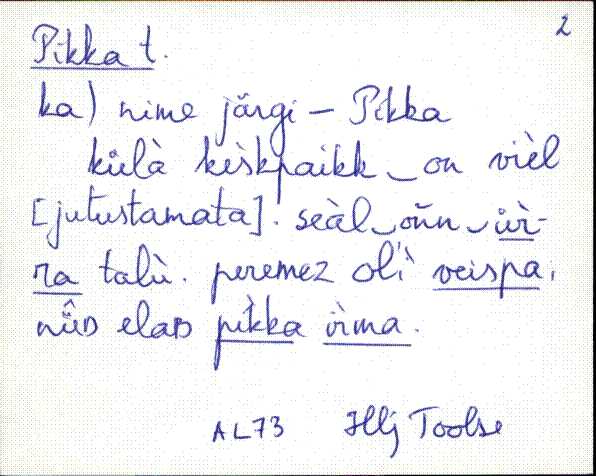 2
Pikka t.
ka) nime järgi – Pikka
külà kèskpaikk‿on vièl
[jutustamata]. seàl‿oñn‿ùr-
ra talù. peremez oĺ'ì veispa,
nüD elaB pìkka ìrma.
AL73 Illj Toolse